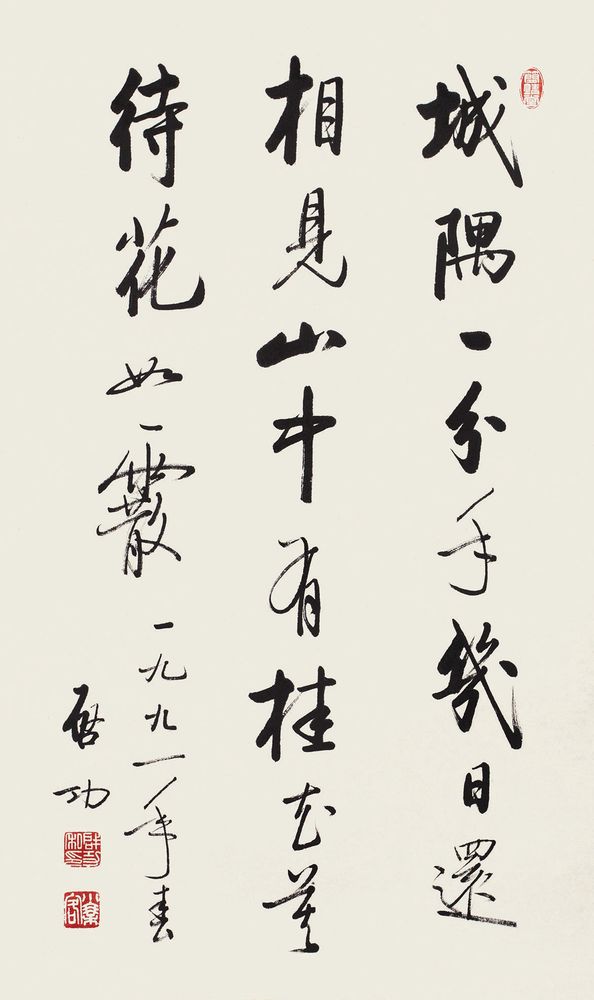 城隅一分手幾日還
相見山中有桂花莫
待花如霰 一九九一年春
启功